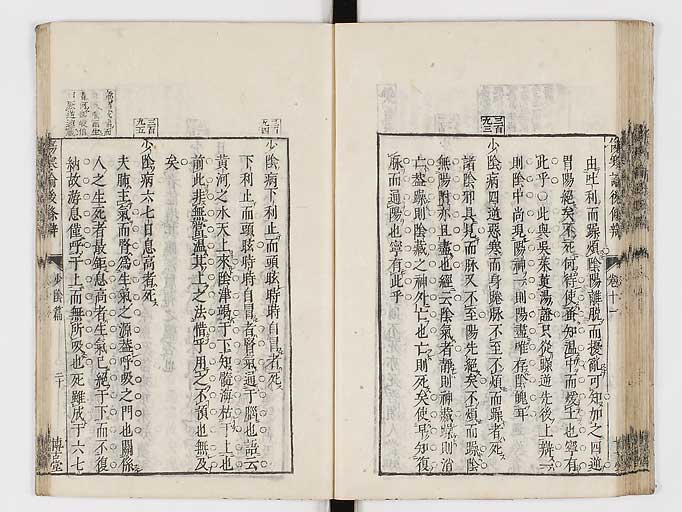 傷寒論後條辨
卷十一
由吐利而躁煩陰陽離脫而擾亂可知加之四逆
胃陽絕矣不死何待使蚤知溫中而煖土也寧有
此乎○此與吳茱萸湯證只從躁逆先後上辨一
則陰中尚現陽神一則陽盡唯存陰魄耳
三百九三
少陰病四逆惡寒而身踡脈不至不煩而躁者死
諸陰邪具見而脈又不至陽先絕矣不煩而躁陰
無陽附亦且盡也經云陰氣者靜則神藏躁則消
亡蓋躁則陰藏之神外亡也亡則死矣使早知復
脈而通陽也寧有此乎
三百九四
少陰病下利止而頭眩時時自冒者死
下利止而頭眩時時自冒者腎氣通于腦也語云
黃河之水天上來陰津竭于下知髓海枯于上也
前此非無當溫其上之法惜乎用之不預也無及
矣
三百九五
少陰病六七日息高者死
夫肺主氣而腎為生氣之源蓋呼吸之門也關係
人之生死者最鉅息高者生氣已絕于下而不復
納故游息僅呼于上而無所吸也死雖成于六七
傷寒論後條辨
少陰篇
二十
博堂